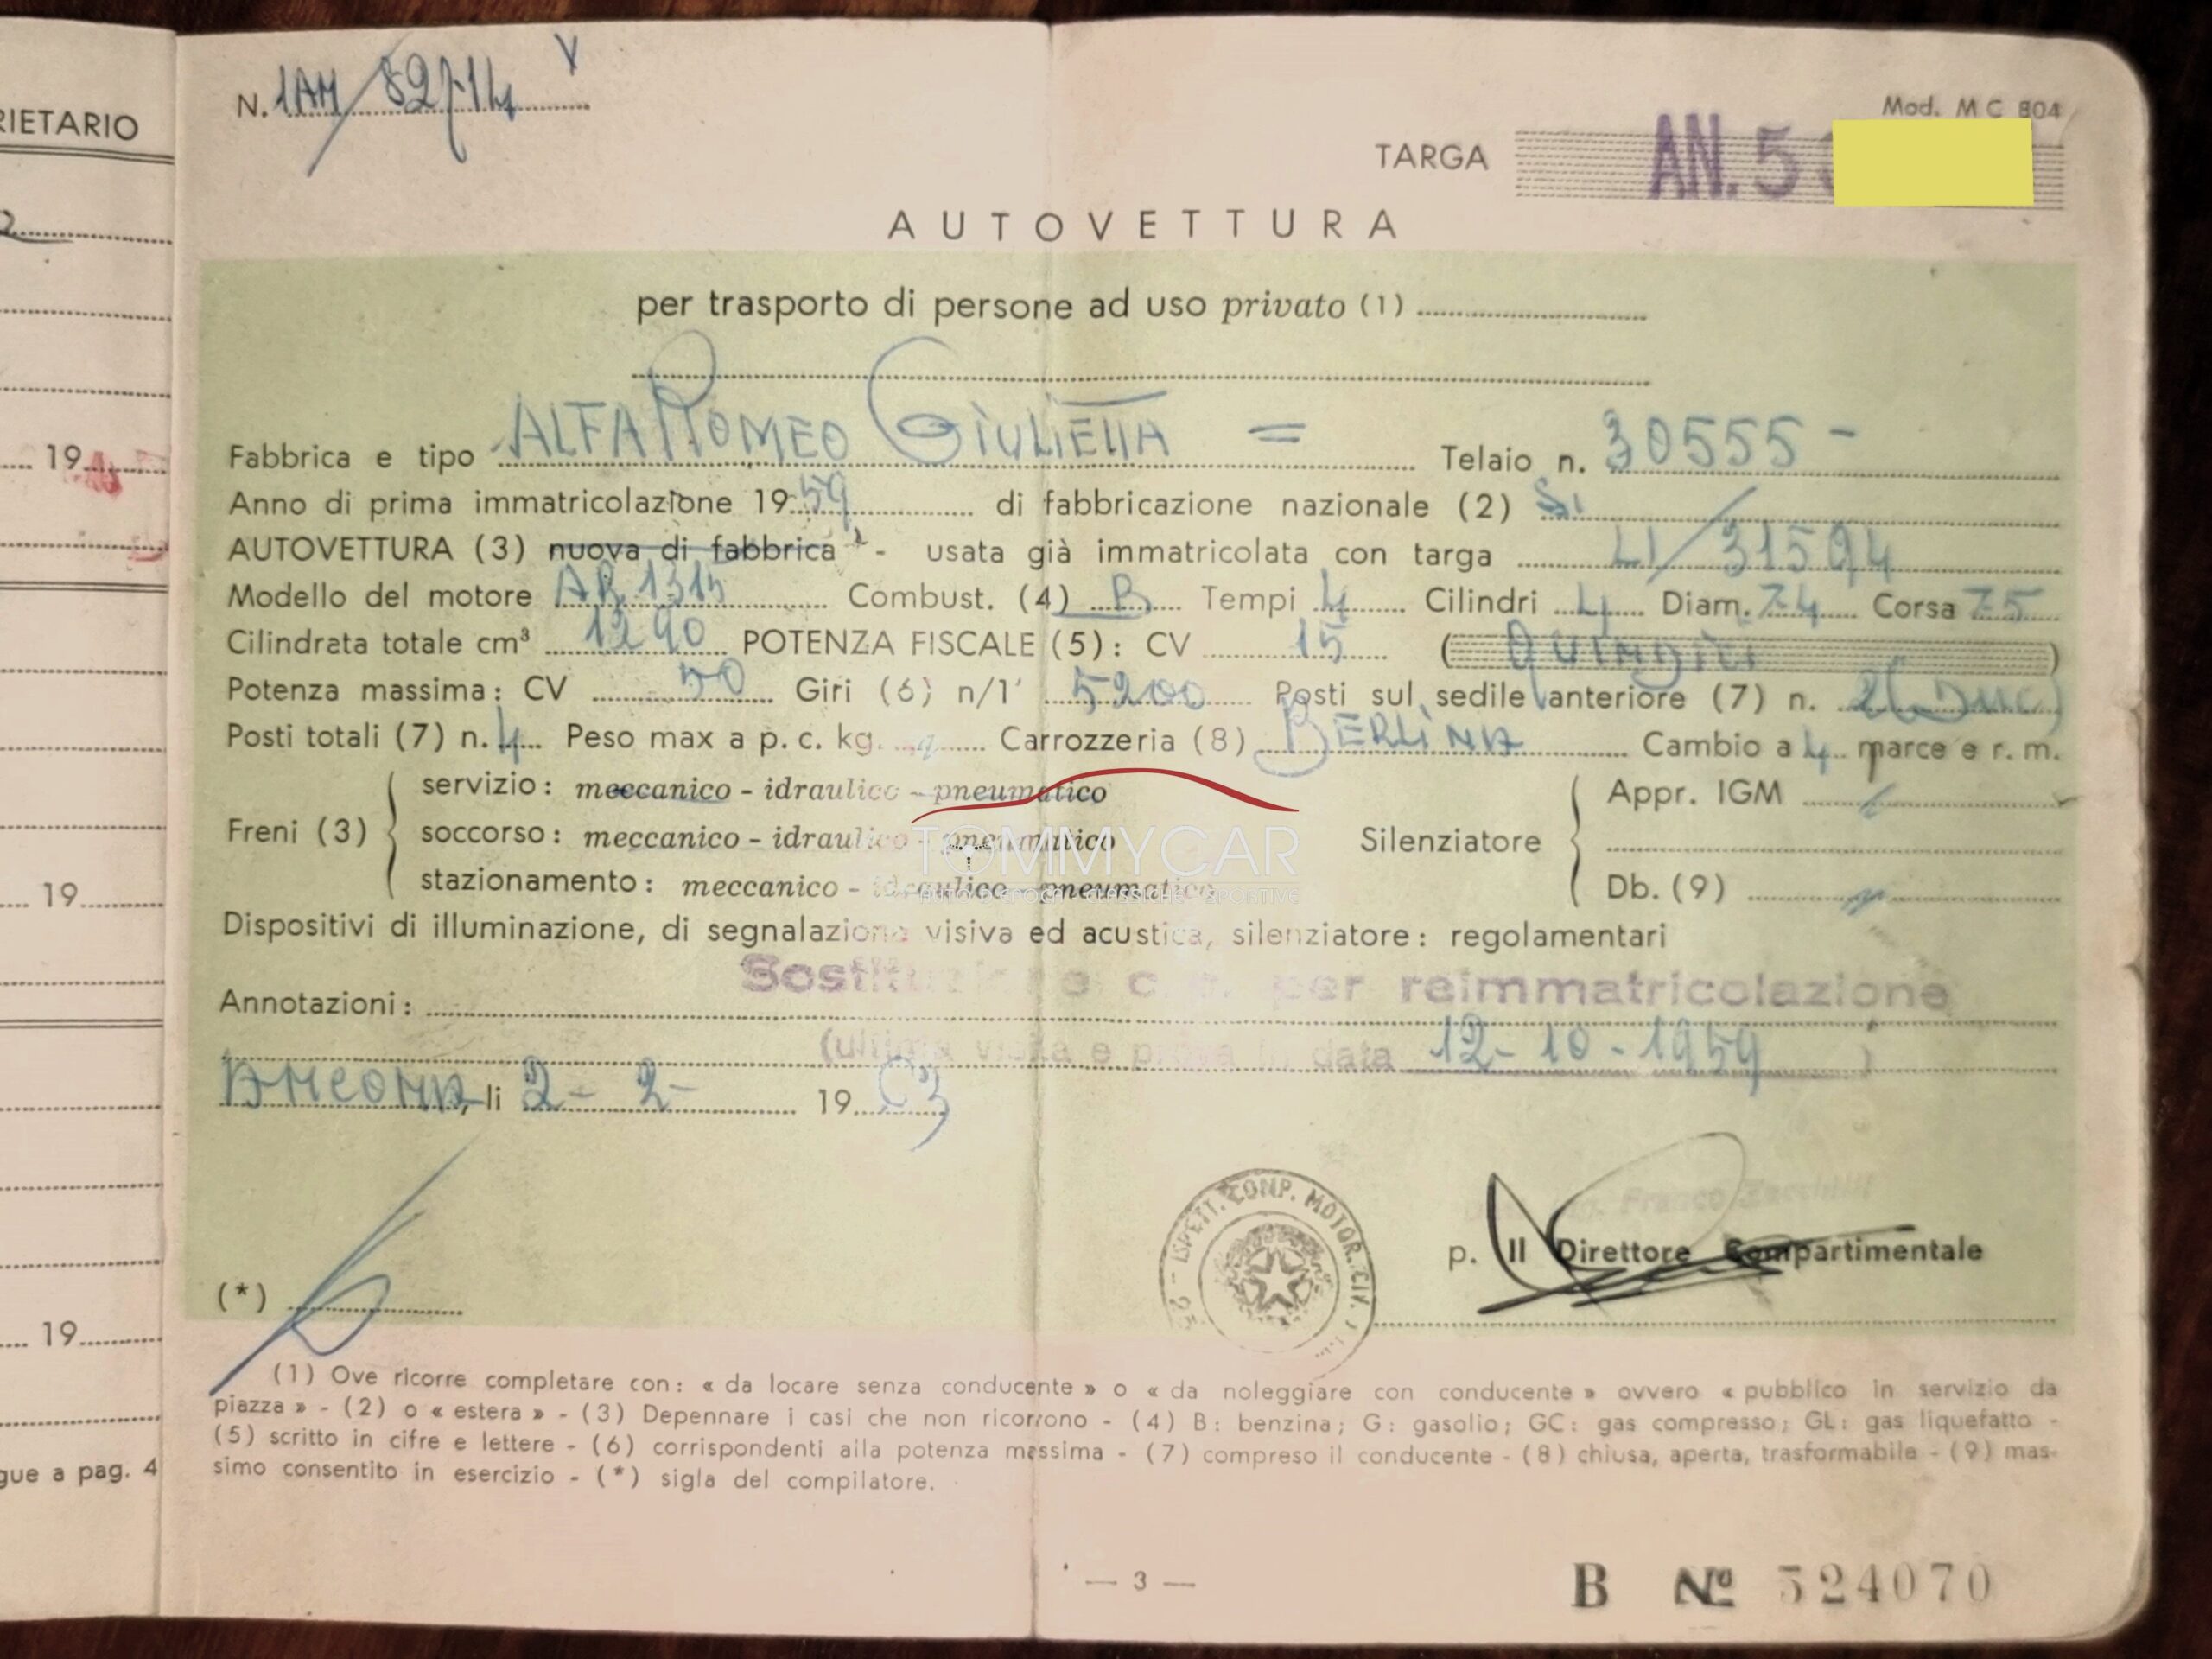 RIETARIO
19
19
19
gue a pag. 4
N. 1AM/82714
Mod. MC 804
TARGA AN. 5
AUTOVETTURA
per trasporto di persone ad uso privato (1)
Fabbrica e tipo ALFA ROMEO GIULIETTA = Telaio n. 30555-
Anno di prima immatricolazione 1959 di fabbricazione nazionale (2) Si
AUTOVETTURA (3) nuova di fabbrica - usata già immatricolata con targa LI/31594
Modello del motore AR 1315 Combust. (4) B Tempi 4 Cilindri 4 Diam. 74 Corsa 75
Cilindrata totale cm³ 1290 POTENZA FISCALE (5): CV 15 (QUINDICI)
Potenza massima: CV 50 Giri (6) n/1' 5200 Posti sul sedile anteriore (7) n. 2(Due)
Posti totali (7) n. 4 Peso max a p. c. kg. Carrozzeria (8) BERLINA Cambio a 4 marce e r. m.
Freni (3)
servizio: meccanico - idraulico - pneumatico
soccorso: meccanico - idraulico - pneumatico
stazionamento: meccanico - idraulico - pneumatico
Silenziatore
Appr. IGM
Db. (9)
TOMMYCAR
AUTO D'EPOCA CLASSICHE SPORTIVE
Dispositivi di illuminazione, di segnalazione visiva ed acustica, silenziatore: regolamentari
Sostituzione c.c. per reimmatricolazione
Annotazioni:
(ultima visita e prova in data 12-10-1959)
ANCONA, li 2-2- 1963
ISPETT. COMP. MOTOR. CIV.
Ing. Franco Zacchilli
p. Il Direttore Compartimentale
(*)
(1) Ove ricorre completare con: « da locare senza conducente » o « da noleggiare con conducente » ovvero « pubblico in servizio da
piazza » - (2) o « estera » - (3) Depennare i casi che non ricorrono - (4) B: benzina; G: gasolio; GC: gas compresso; GL: gas liquefatto -
(5) scritto in cifre e lettere - (6) corrispondenti alla potenza massima - (7) compreso il conducente - (8) chiusa, aperta, trasformabile - (9) mas-
simo consentito in esercizio - (*) sigla del compilatore.
— 3 —
B Nº 524070